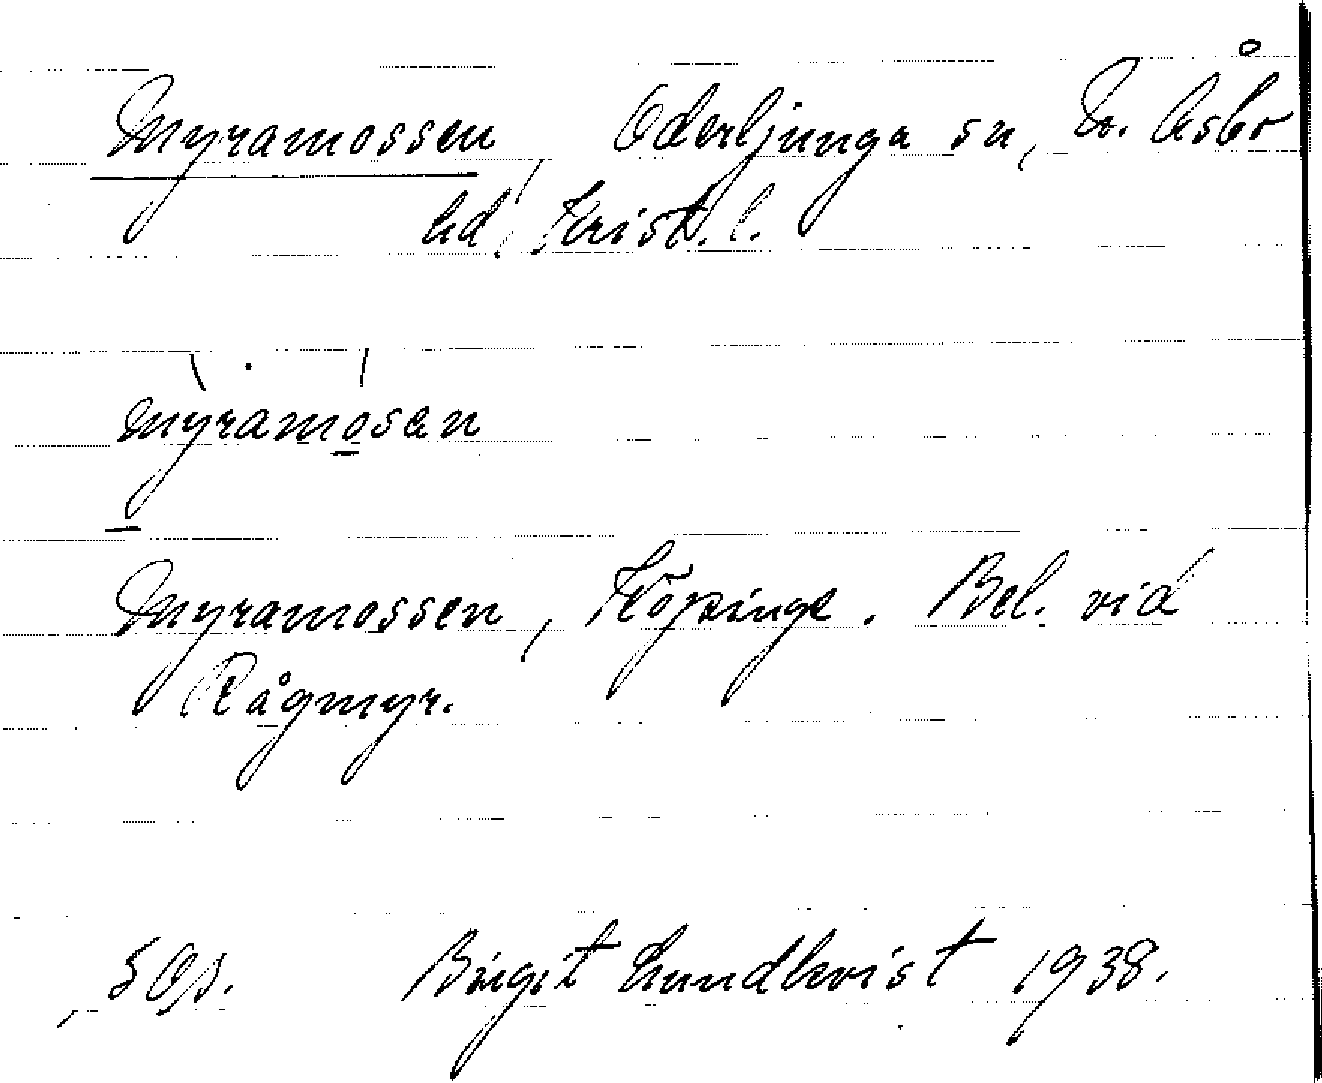 Myramossen, Oderljunga sn, N. Åsbo
hd, Krist. l.
myramosan
Myramossen, Köpinge. Bel. vid
Rågmyr.
Birgit Lundkvist 1938.